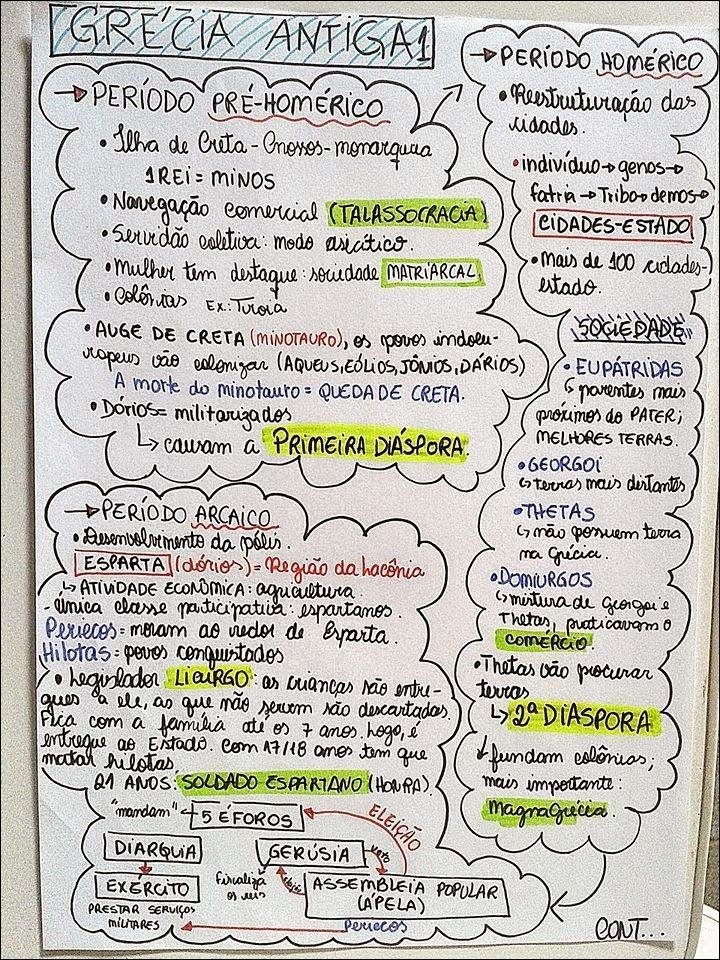 GRÉCIA ANTIGA 1
→ PERÍODO PRÉ-HOMÉRICO
• Ilha de Creta - Cnossos - monarquia
1 REI = MINOS
• Navegação comercial (TALASSOCRACIA)
• Servidão coletiva: modo asiático.
• Mulher tem destaque: sociedade MATRIARCAL.
• Colônias Ex: Troia
• AUGE DE CRETA (MINOTAURO), os povos indoeu-
ropeus vão colonizar (AQUEUS, EÓLIOS, JÔNIOS, DÁRIOS)
A morte do minotauro = QUEDA DE CRETA.
• Dórios = militarizados
↳ causam a PRIMEIRA DIÁSPORA.
→ PERÍODO HOMÉRICO
• Reestruturação das
cidades.
• indivíduo → genos →
fatria → Tribo → demos →
CIDADES-ESTADO
• Mais de 100 cidades-
estado.
SOCIEDADE
• EUPÁTRIDAS
↳ parentes mais
próximos do PATER;
MELHORES TERRAS.
• GEORGOI
↳ terras mais distantes
• THETAS
↳ não possuem terra
na Grécia.
• DOMIURGOS
↳ mistura de Georgoi e
Thetas, praticavam o
COMÉRCIO.
• Thetas vão procurar
terras
↳ 2ª DIASPORA
↓ fundam colônias;
mais importante:
Magna Grécia.
→ PERÍODO ARCAICO
• Desenvolvimento da pólis.
ESPARTA (dórios) = Região da Lacônia
↳ ATIVIDADE ECONÔMICA: agricultura.
- única classe participativa: espartanos.
Periecos = moram ao redor de Esparta.
Hilotas = povos conquistados
• Legislador LICURGO: as crianças são entre-
gues a ele, as que não servem são descartadas.
Fica com a família até os 7 anos. Logo, é
entregue ao Estado. Com 17/18 anos tem que
matar hilotas.
21 ANOS: SOLDADO ESPARTANO (HONRA).
"mandam" ← 5 ÉFOROS
ELEIÇÃO
DIARQUIA
GERÚSIA
veto
EXERCITO
Fiscaliza
os reis
ASSEMBLEIA POPULAR
(ÁPELA)
PRESTAR SERVIÇOS
MILITARES
Periecos
CONT...